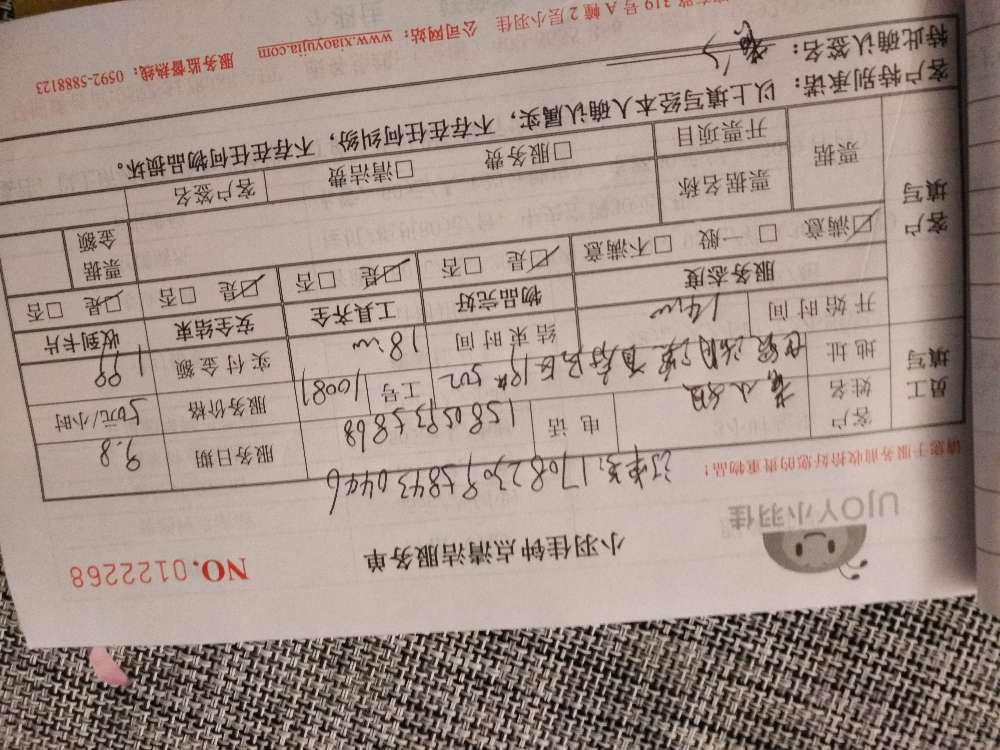 UJOY小羽佳
小羽佳钟点清洁服务单
NO.0122268
请您于服务前收拾好您的贵重物品!
员工填写
客户姓名 小姐 电话 服务日期 9.8
地址 工号 10081 服务价格 50元/小时
开始时间 14 结束时间 18 实付金额 199
服务态度 物品完好 工具齐全 安全结束 收到卡片
客户填写
☑满意 □一般 □不满意 ☑是 □否 ☑是 □否 ☑是 □否 ☑是 □否
票据 票据名称 票据金额
开票项目 □服务费 □清洁费 客户签名
客户特别承诺:以上填写经本人确认属实,不存在任何纠纷,不存在任何物品损坏。
特此确认签名:
319号A幢2层小羽佳 公司网站:www.xiaoyujia.com 服务监督热线:0592-5888123